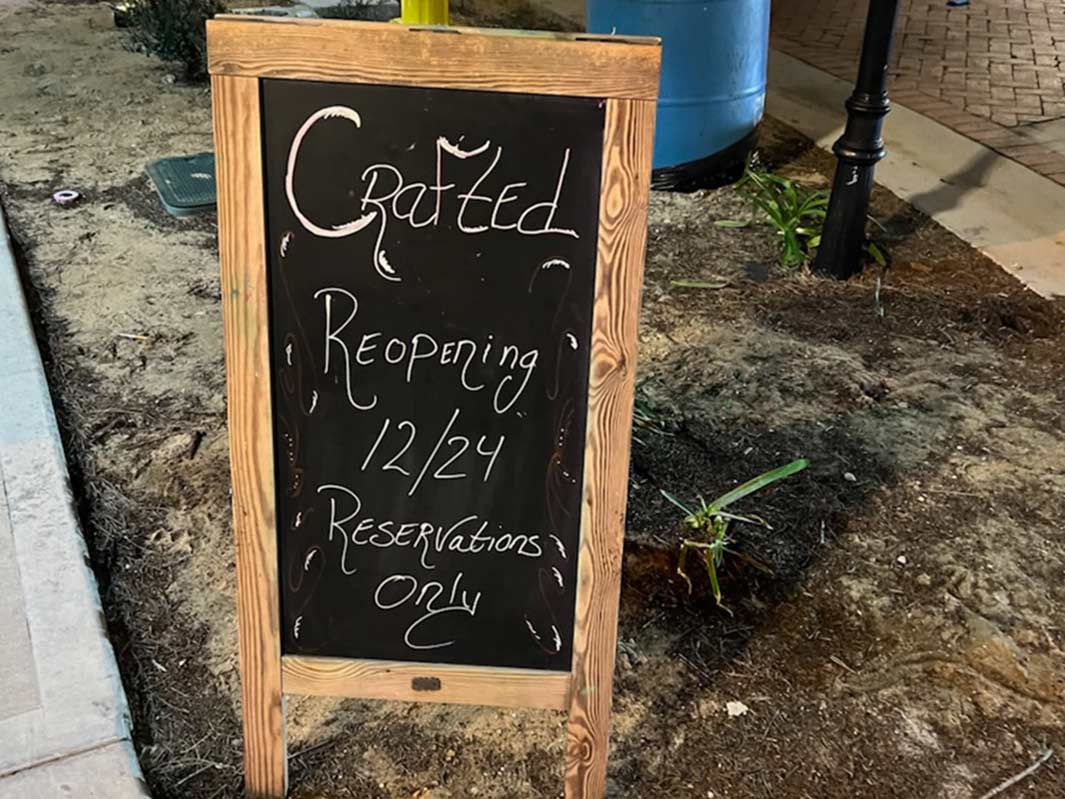 Crafted
Reopening
12/24
Reservations
Only